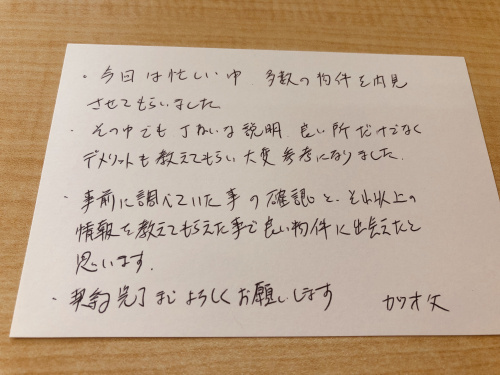 ・今日は忙しい中 多数の物件を内見
させてもらいました
・その中でも丁ねいな説明、良い所だけでなく
デメリットも教えてもらい大変参考になりました.
・事前に調べていた事の確認と、それ以上の
情報を教えてもらえた事で良い物件に出会えたと
思います.
・契約完了までよろしくお願いします カツオ